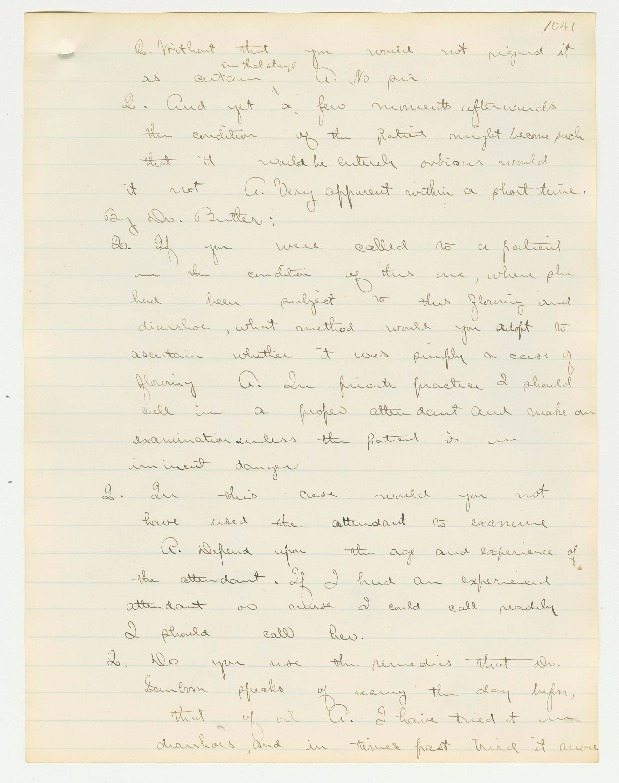 1041
Q. Without that you would not regard it
in that stage
as certain A. No sir
Q. And yet a few moments afterwards
the condition of the patient might become such
that it would be entirely obvious would
it not A. Very apparent within a short time.
By Dr. Butler:
Q. If you were called to a patient
in the condition of this one, where she
had been subject to this flowing and
diarrhoe, what method would you adopt to
ascertain whether it was simply a case of
flowing A. In private practice I should
call in a proper attendant and make an
examination unless the patient is in
iminent danger
Q. In this case would you not
have used the attendant to examine
A. Depend upon the age and experience of
the attendant. If I had an experienced
attendant or nurse I could call readily
I should call her.
Q. Do you use the remedies that Dr.
Sanborn speaks of using the day before,
that of A. I have tried it in
diarrhoeas, and in times past tried it more